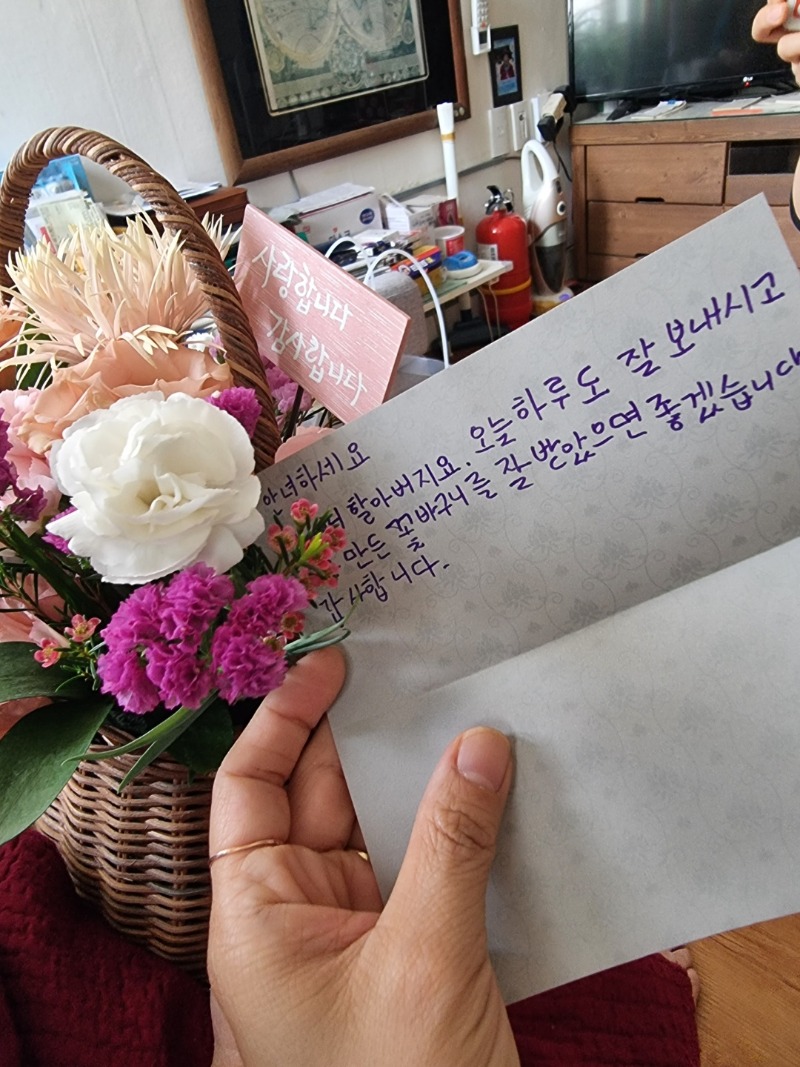 사랑합니다
감사합니다
안녕하세요
할아버지요. 오늘하루도 잘 보내시고
만든 꽃바구니를 잘 받았으면 좋겠습니다
감사합니다.
LG